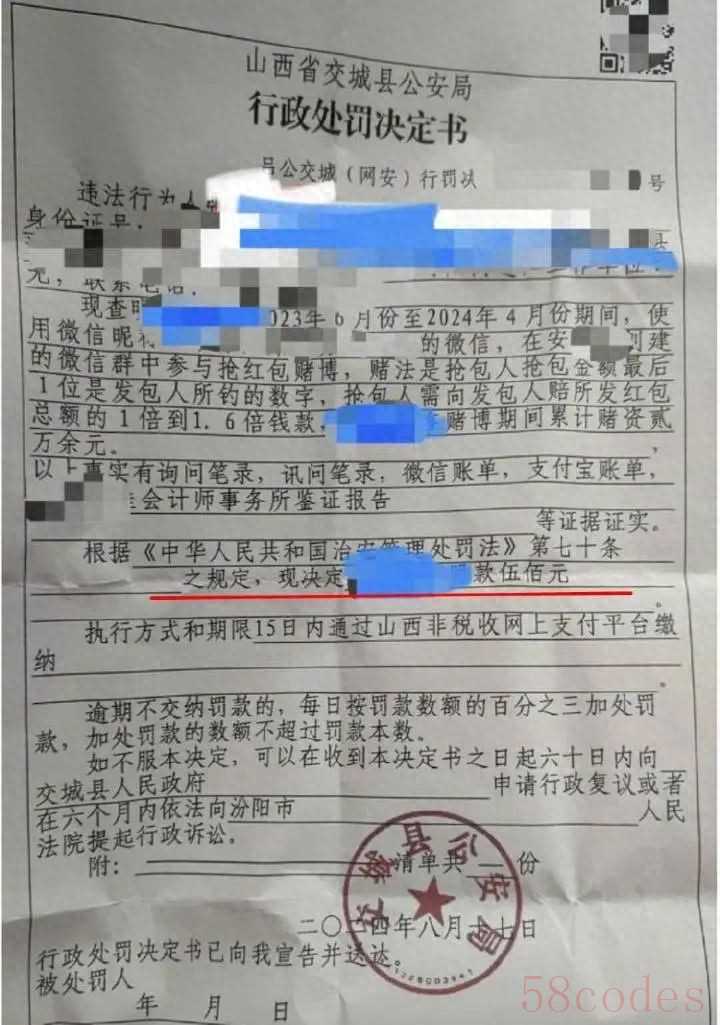 山西省交城县公安局
行政处罚决定书
公交城（网安）行罚决 号
违法行为人
身份证号：
元，联系电话：
现查明 2023年6月份至2024年4月份期间，使
用微信昵称 的微信，在安 创建
的微信群中参与抢红包赌博，赌法是抢包人抢包金额最后
1位是发包人所钓的数字，抢包人需向发包人赔所发红包
总额的1倍到1.6倍钱款， 赌博期间累计赌资贰
万余元。
以上事实有询问笔录，讯问笔录，微信账单，支付宝账单，
会计师事务所鉴证报告
等证据证实。
根据《中华人民共和国治安管理处罚法》第七十条
之规定，现决定 款伍佰元
。
执行方式和期限15日内通过山西非税收网上支付平台缴
纳
。
逾期不交纳罚款的，每日按罚款数额的百分之三加处罚
款，加处罚款的数额不超过罚款本数。
如不服本决定，可以在收到本决定书之日起六十日内向
交城县人民政府 申请行政复议或者
在六个月内依法向汾阳市 人民
法院提起行政诉讼。
附： 清单共 份
交城县公安局
二〇二四年八月 七日
行政处罚决定书已向我宣告并送达。
被处罚人
年 月 日
58codes